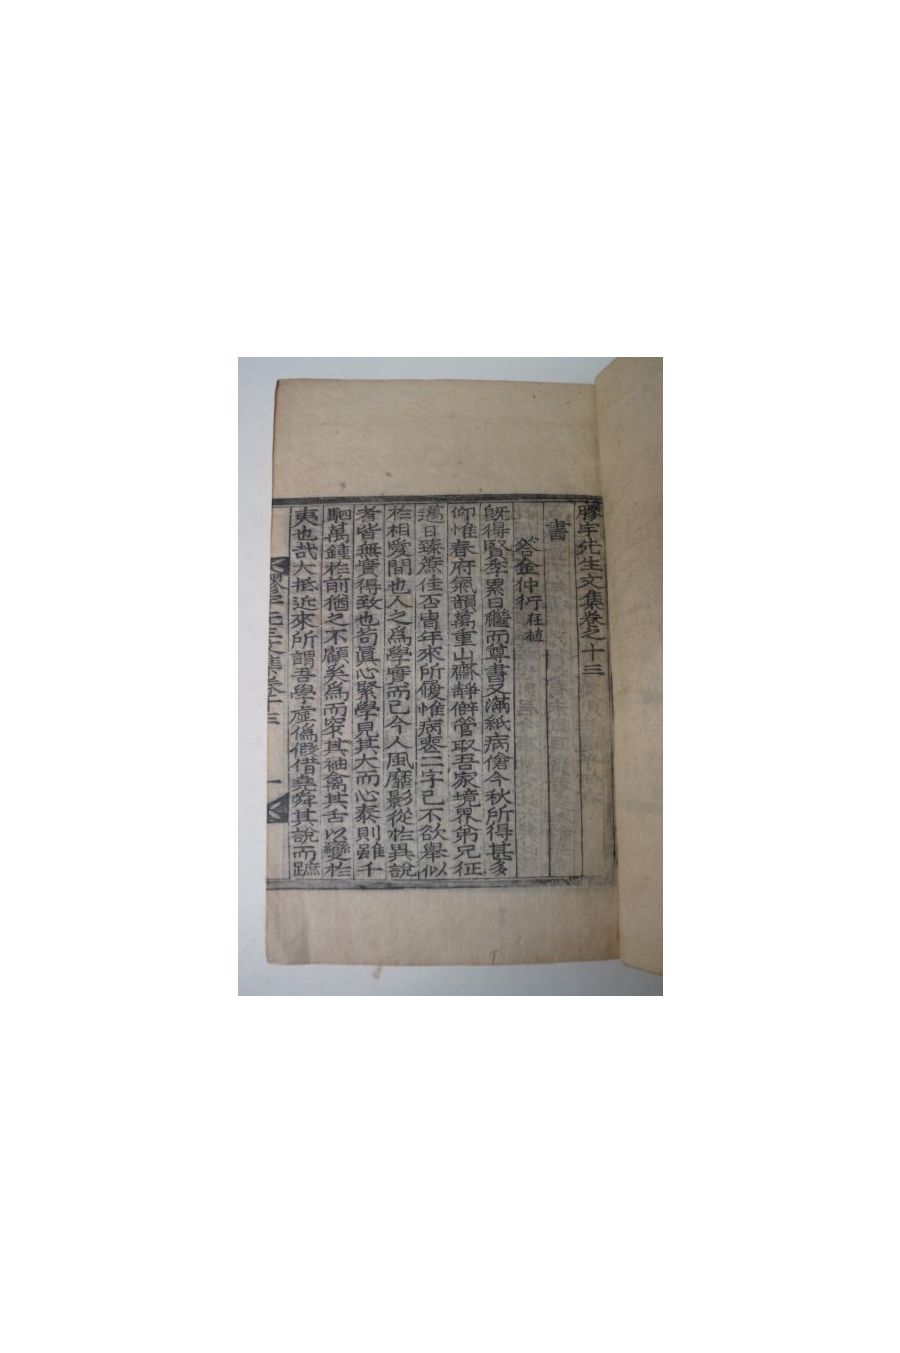 膠宇先生文集卷之十三
書
答金仲衍在植
旣得賢季累日繼而尊書又滿紙病傖今秋所得甚多
仰惟春府氣韻萬重山齋靜僻管取吾家境界弟兄征
邁日臻蔗佳否胄年來所履惟病喪二字已不欲舉似
於相愛間也人之爲學實而已今人風靡影從於異說
者皆無實得致也苟眞心緊學見其大而心泰則雖千
駟萬鍾於前猶之不顧矣爲而突其袖禽其舌以變於
夷也哉大抵近來所謂吾學虛僞假借堯舜其說而蹠
膠宇先生文集卷十三
一